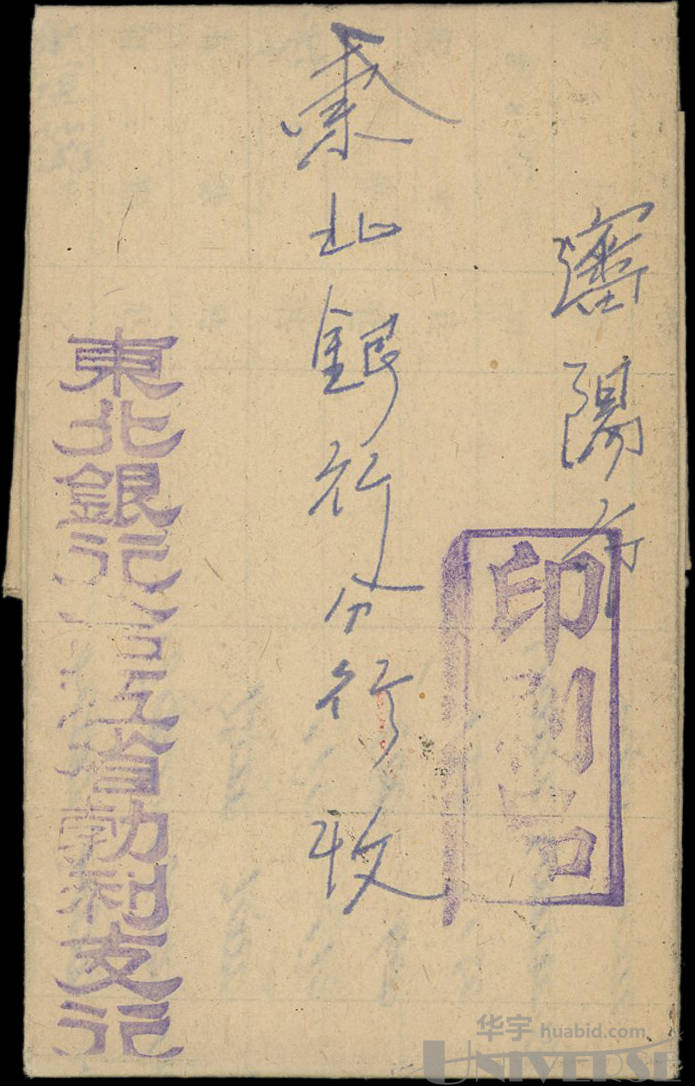 瀋陽市
印刷品
東北銀行分行收
東北銀行合江省勃利支行
华宇 huabid.com
UNIVERSE